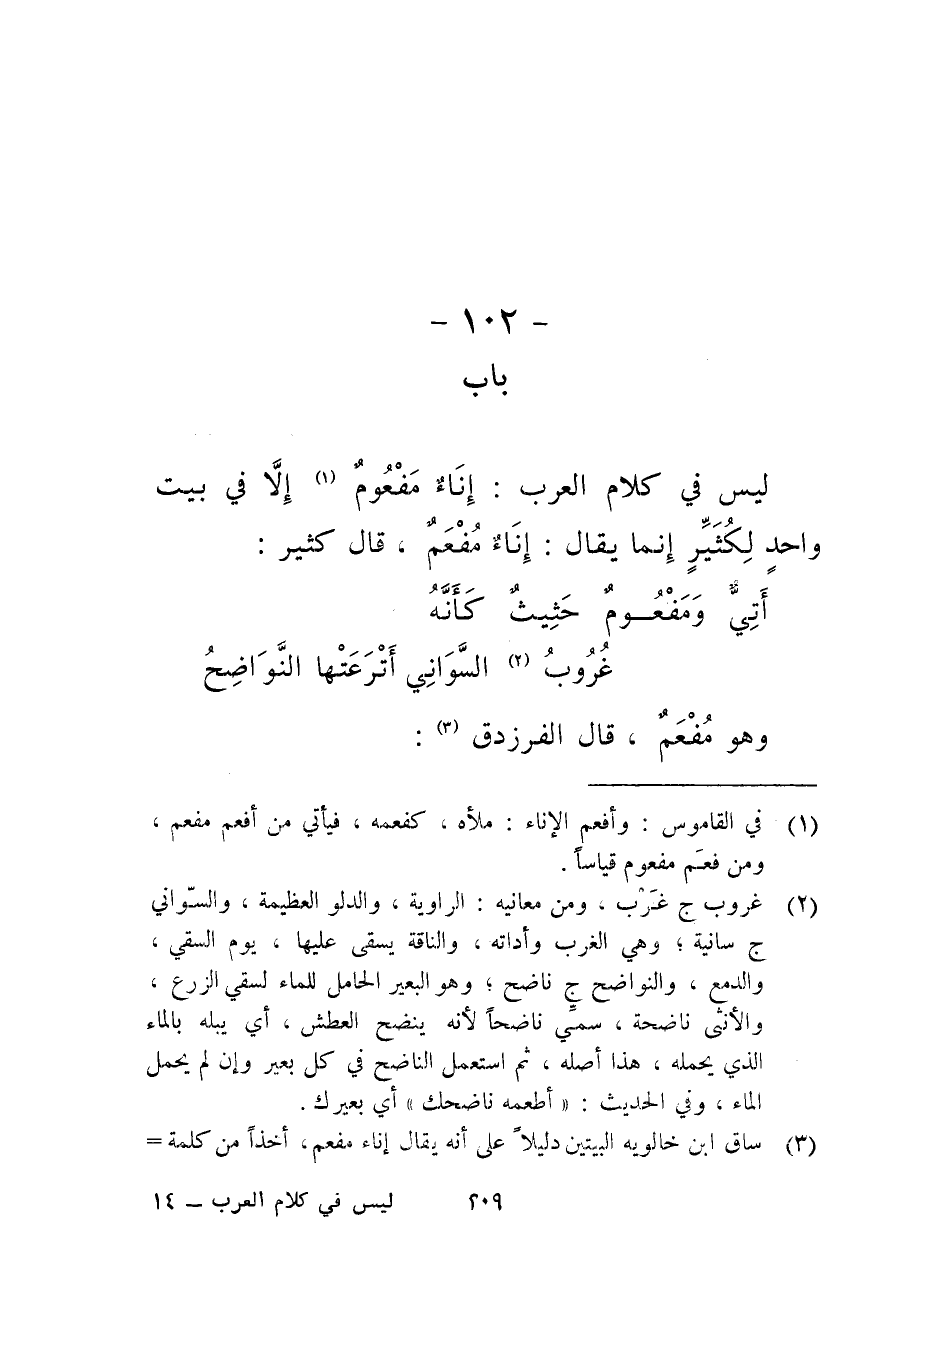 - ١٠٢ -
باب
ليس في كلام العرب : إِنَاءٌ مَفْعُومٌ (١) إِلَّا في بيت
واحدٍ لِكُثَيِّرٍ إنما يقال : إِنَاءٌ مُفْعَمٌ ، قال كثير :
أَتِيٌّ وَمَفْعُـومٌ حَثِيثٌ كَأَنَّهُ
غُرُوبُ (٢) السَّوَانِي أَتْرَعَتْها النَّوَاضِحُ
وهو مُفْعَمٌ ، قال الفرزدق (٣) :
(١) في القاموس : وأفعم الإناء : ملأه ، كفعمه ، فيأتي من أفعم مفعم ،
ومن فعَم مفعوم قياساً .
(٢) غروب ج غَرْب ، ومن معانيه : الراوية ، والدلو العظيمة ، والسّواني
ج سانية ؛ وهي الغرب وأداته ، والناقة يسقى عليها ، يوم السقي ،
والدمع ، والنواضح ج ناضح ؛ وهو البعير الحامل للماء لسقي الزرع ،
والأنثى ناضحة ، سمّي ناضحاً لأنه ينضح العطش ، أي يبله بالماء
الذي يحمله ، هذا أصله ، ثم استعمل الناضح في كل بعير وإن لم يحمل
الماء ، وفي الحديث : « أطعمه ناضحك » أي بعيرك .
(٣) ساق ابن خالويه البيتين دليلاً على أنه يقال إناء مفعم، أخذاً من كلمة =
٢٠٩
ليس في كلام العرب – ١٤